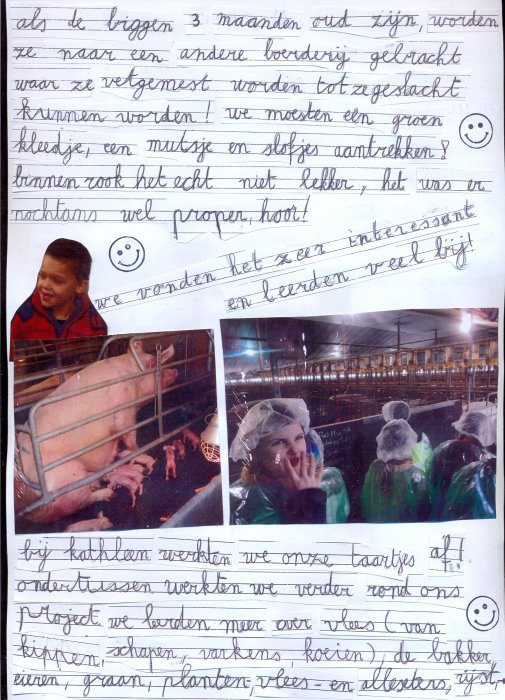 als de biggen 3 maanden oud zijn, worden
ze naar een andere boerderij gebracht
waar ze vetgemest worden tot ze geslacht
kunnen worden! we moesten een groen
kleedje, een mutsje en slofjes aantrekken!
binnen rook het echt niet lekker, het was er
nochtans wel proper, hoor!
we vonden het zeer interessant
en leerden veel bij!
bij kathleen werkten we onze taartjes af!
ondertussen werkten we verder rond ons
project. we leerden meer over vlees (van
kippen, schapen, varkens koeien), de bakker,
eieren, graan, planten-, vlees- en alleseters, rijst,